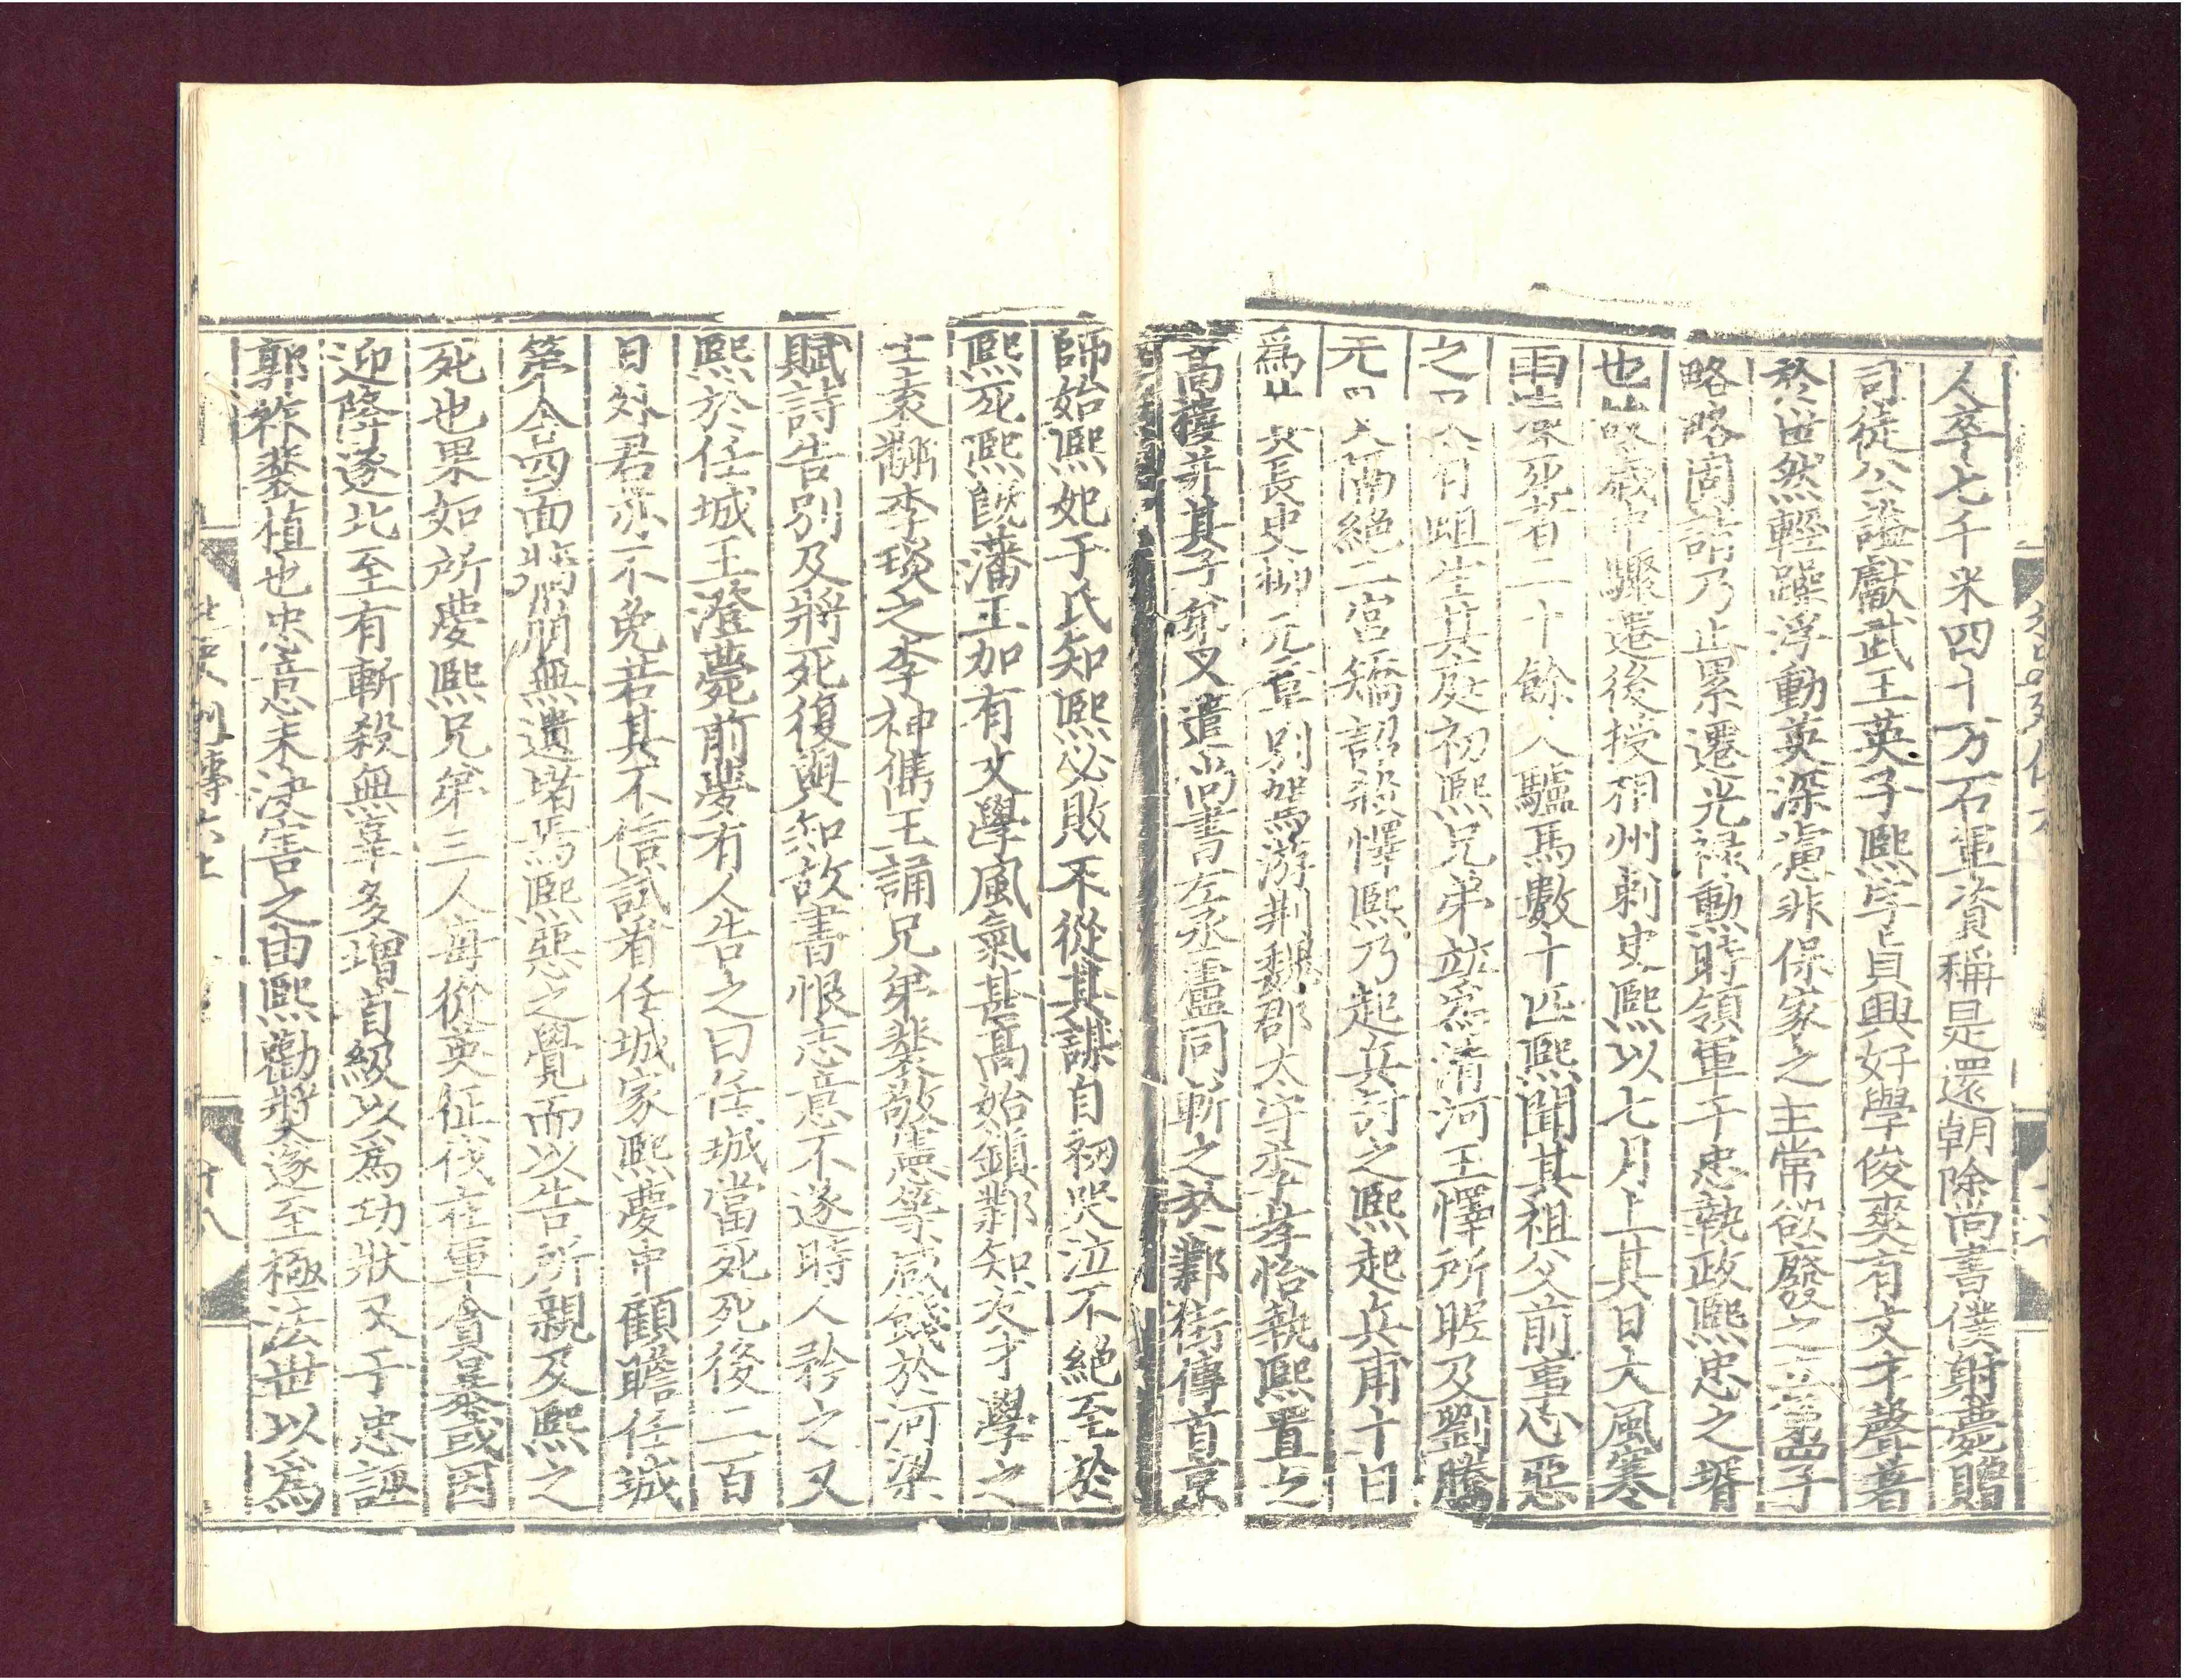 人卒七千米四十万石軍資稱是還朝除尚書僕射薨贈
司徒公謚獻武王英子熙字眞興好學俊爽有文才聲著
於世然輕躁浮動英深慮非保家之主常欲廢之立第子
略略固請乃止累遷光禄勳時領軍于忠執政熙忠之壻
也故歲中驟遷後授相州刺史熙以七月上其日大風寒
雨凍死者二十餘人驢馬數十匹熙聞其祖父前事心惡
之又有蛆生其庭初熙兄弟並爲清河王懌所昵及劉騰
元叉隔絕二宮矯詔殺懌熙乃起兵討之熙起兵甫十日
爲其長史柳元章別駕游荆魏郡太守李孝怡執熙置之
高樓并其子弟叉遣尚書左丞盧同斬之於鄴街傳首京
師始熙妃于氏知熙必敗不從其謀自初哭泣不絕至於
熙死熙旣藩王加有文學風氣甚高始鎮鄴知友才學之
士袁翻李琰之李神儁王誦兄弟裴敬憲等咸餞於河梁
賦詩告别及將死復與知故書恨志意不遂時人矜之又
熙於任城王澄薨前夢有人告之曰任城當死死後二百
日外君亦不免若其不信試看任城家熙夢中顧瞻任城
第舍四面牆崩無遺堵焉熙惡之覺而以告所親及熙之
死也果如所夢熙兄弟三人每從英征伐在軍貪暴或因
迎降逐北至有斬殺無辜多增首級以爲功狀又于忠誣
郭祚裴植也忠意未決害之由熙勸獎遂至極法世以爲
列傳六上
十八